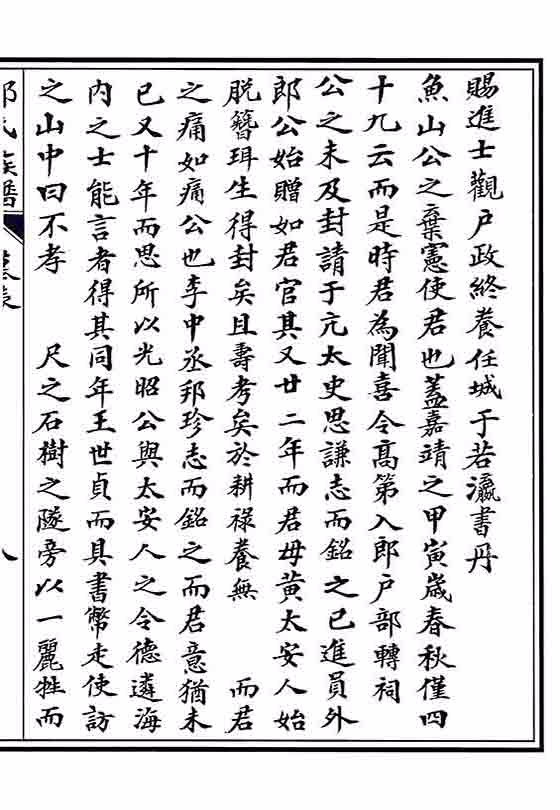 賜進士觀戶政終養任城于若瀛書丹
魚山公之棄憲使君也蓋嘉靖之甲寅歲春秋僅四
十九云而是時君為聞喜令高第入郎戶部轉祠
公之未及封請于亢太史思謙志而銘之已進員外
郎公始贈如君官其又廿二年而君母黃太安人始
脫簪珥生得封矣且壽考矣於耕祿養無　　而君
之痛如痛公也李中丞邦珍志而銘之而君意猶未
已又十年而思所以光昭公與太安人之令德遴海
內之士能言者得其同年王世貞而具書幣走使訪
之山中曰不孝　　尺之石樹之隧旁以一麗牲而
氏族譜
八